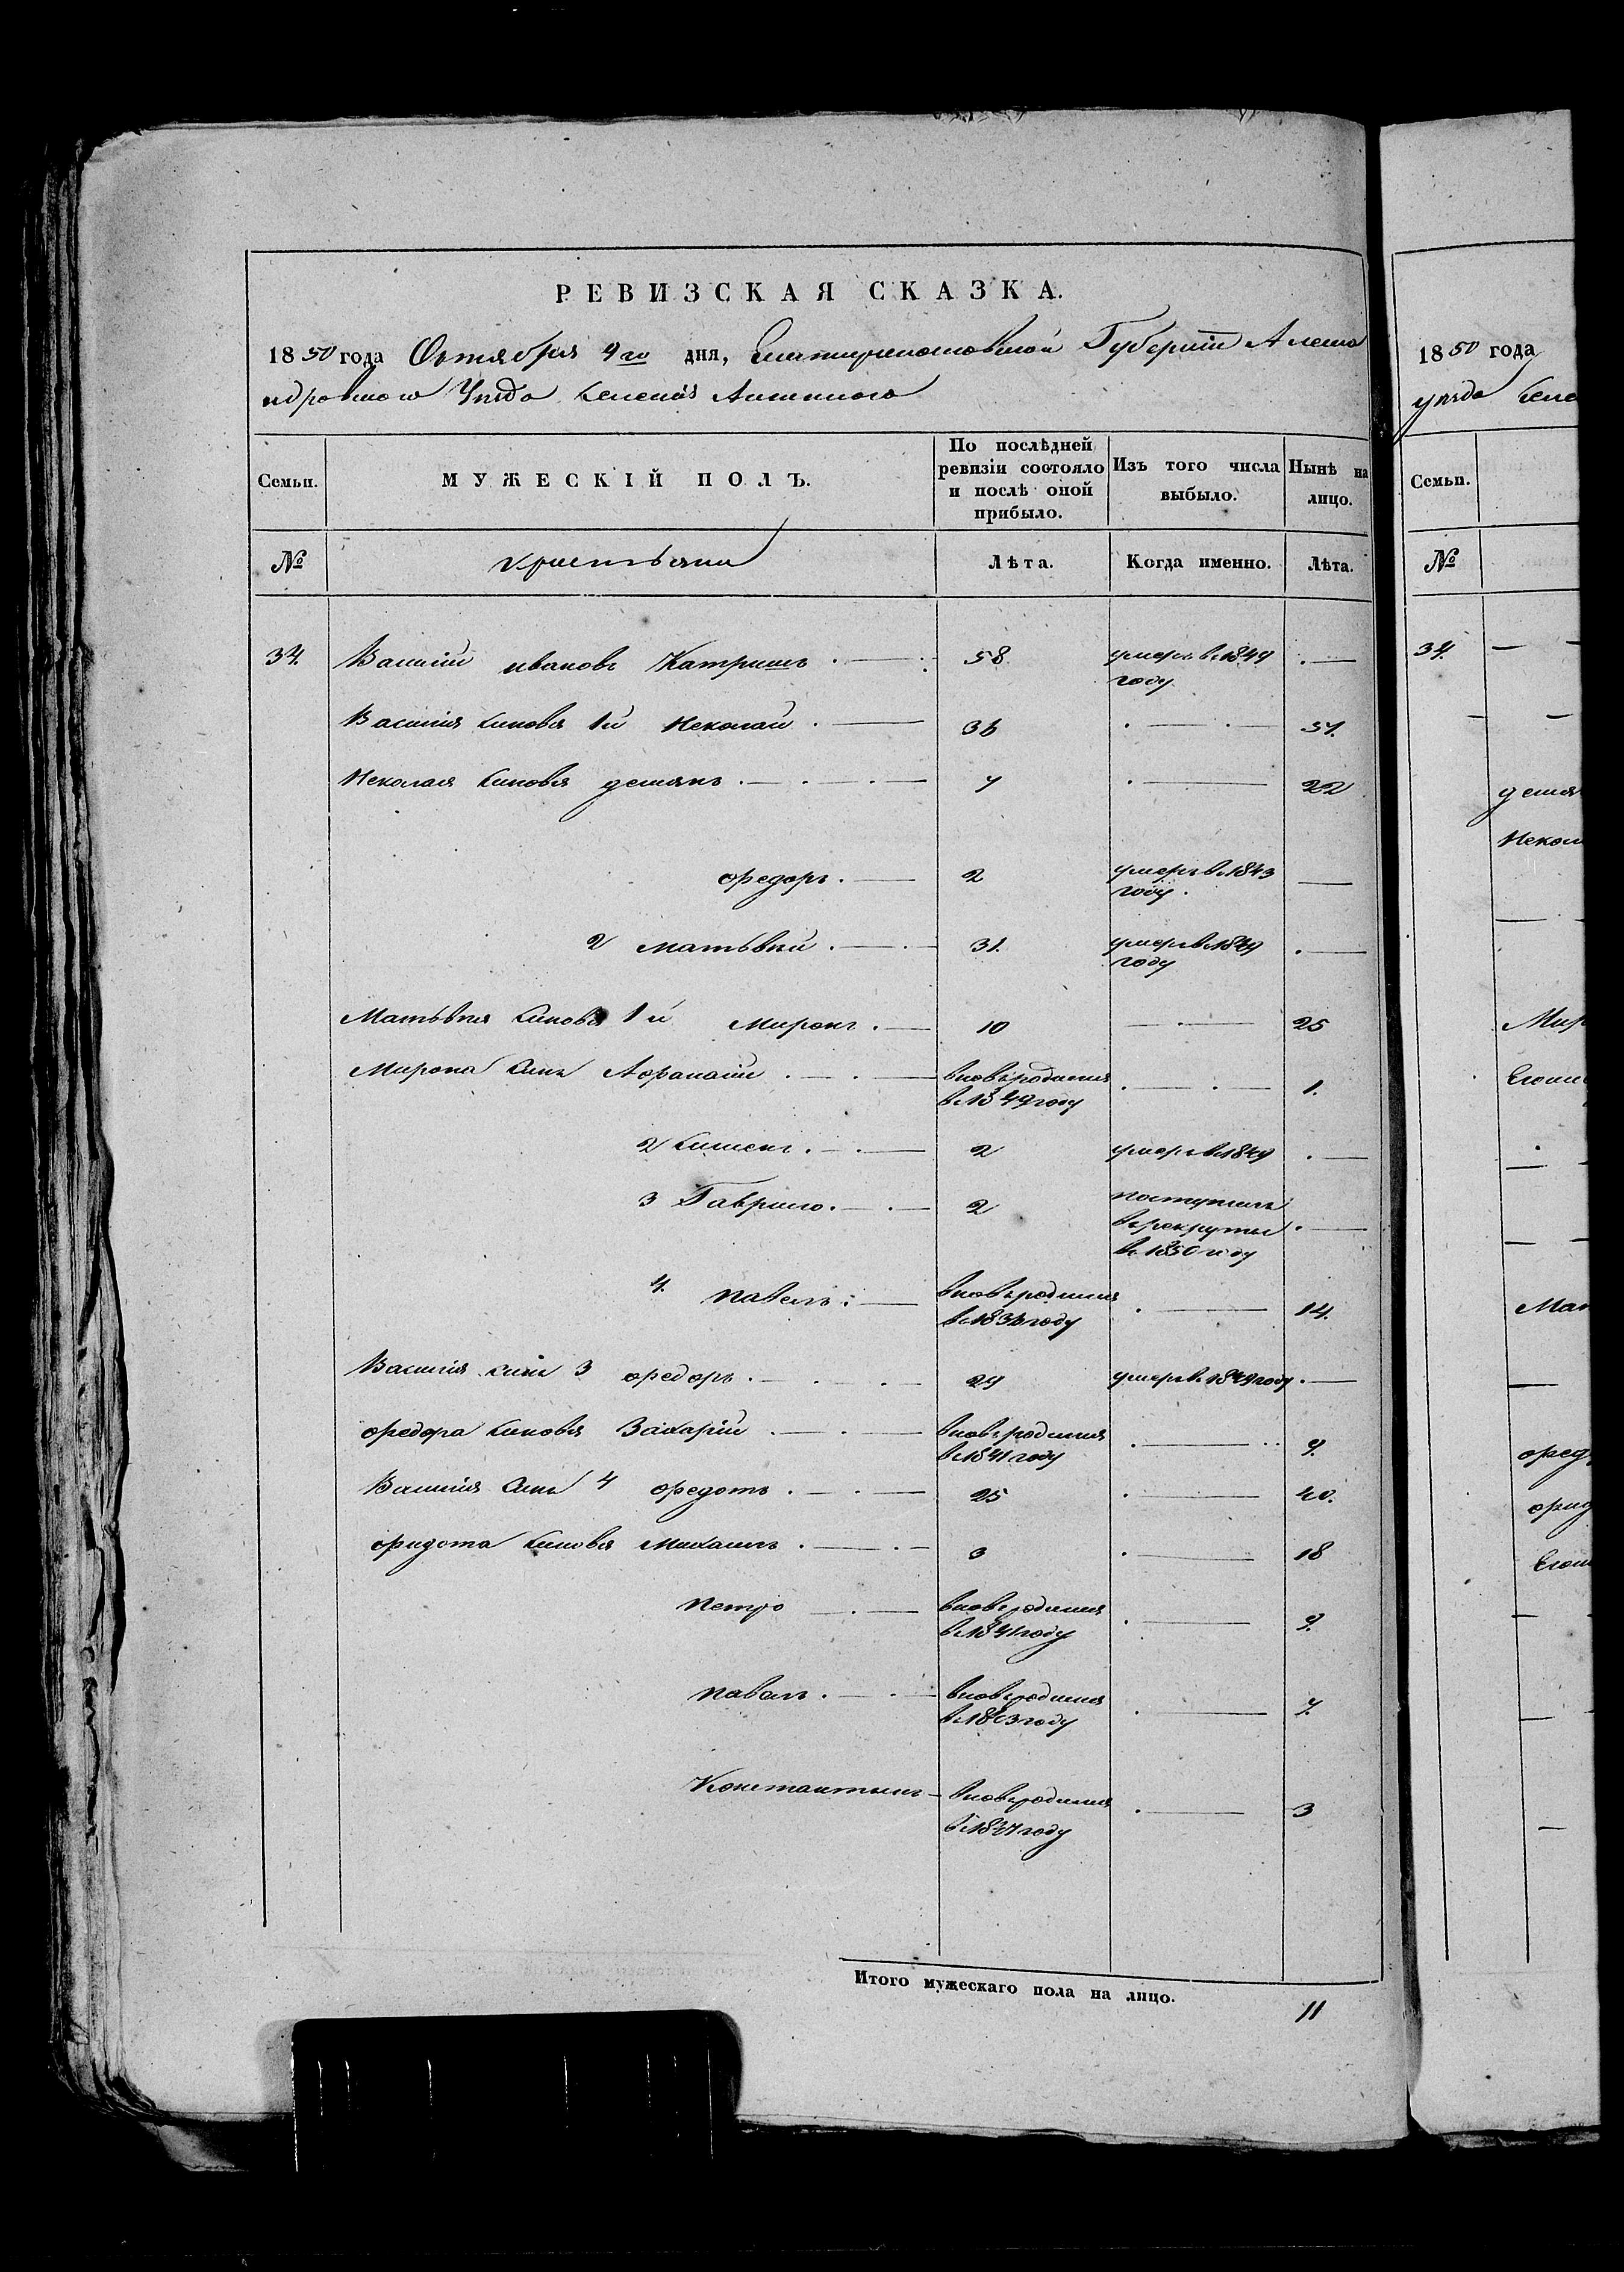 РЕВИЗСКАЯ СКАЗКА.
1850 года Октября 4го дня, Екатеринославской Губернии Алекса
ндровского Уезда Селения
Семьи. МУЖЕСКІЙ ПОЛЪ. По послѣдней ревизіи состояло и послѣ оной прибыло. Изъ того числа выбыло. Нынѣ на лицо.
№ крестьяни Лѣта. Когда именно. Лѣта.
34. Василий ивановъ Катричъ 58 умеръ в 1849 году
Василия синовя 1й Неколай 36 51.
Неколая синовя демянъ 7 22
ѳредоръ 2 умеръ в 1843 году
2 матьвий 31. умеръ в 1849 году
Матьвия синовя 1й Миронъ 10 25
Мирона синъ Аѳранасий вновьродился в 1849 году 1.
2 Сименъ 2 умеръ в 1849
3 Гаврило 2 поступилъ врекруты в 1850 году
4. павелъ вновьродился в 1836 году 14.
Василия синъ 3 ѳредоръ 29 умеръ в 1849 году
ѳредора синовя Захарий вновьродился в 1841 году 9.
Василия синъ 4 ѳредотъ 25 40.
ѳридота синовя Михаилъ 3 18
петро вновьродился в 1841 году 9.
павелъ вновьродился в 1843 году 7.
Константинъ вновьродился в 1847 году 3
Итого мужескаго пола на лицо. 11
1850 года
уезда Селе
Семьи.
№
34.
демя
Некол
Мир
Ман
ѳред
ѳрид